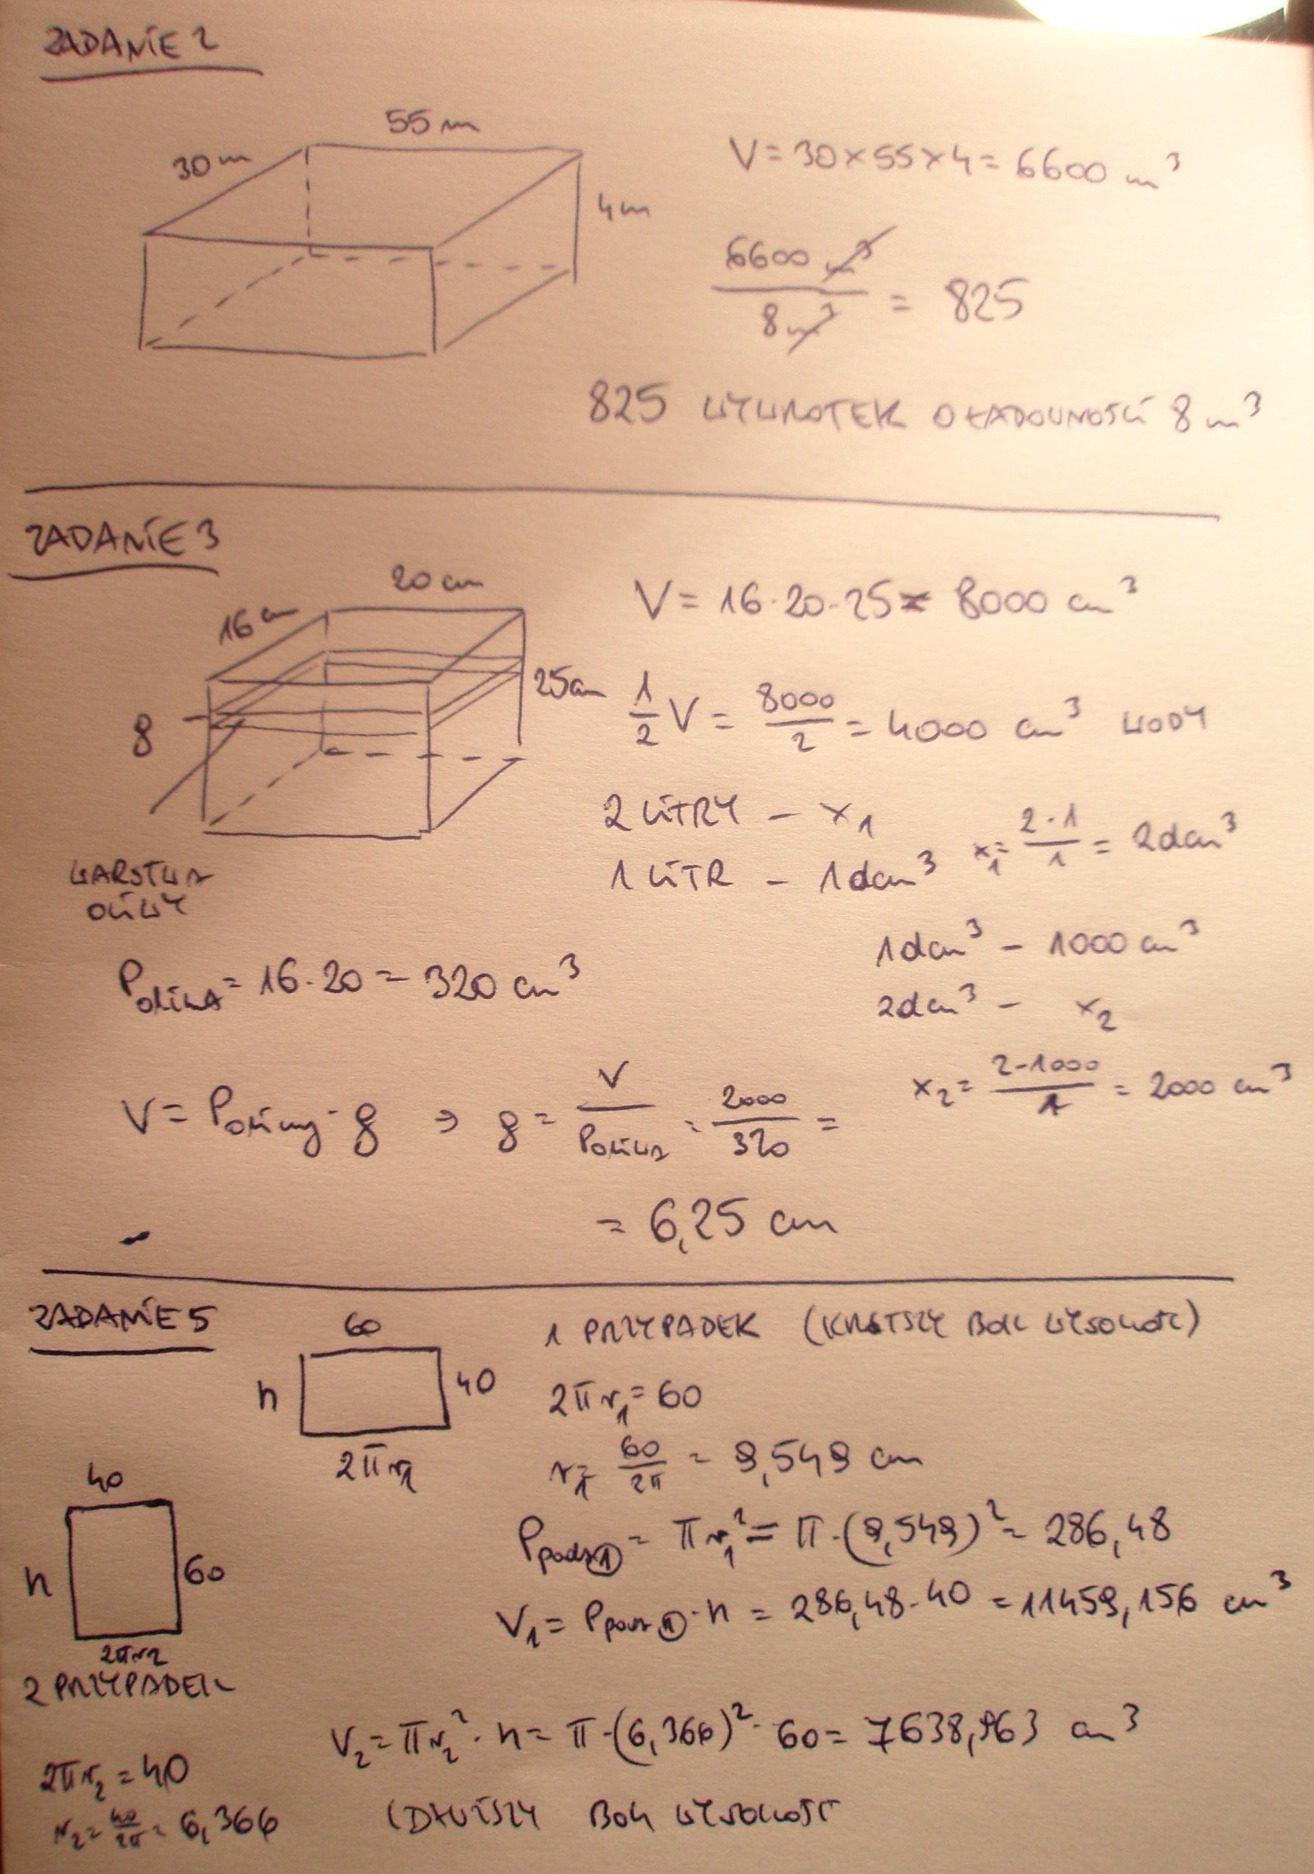 ZADANIE 2
55 m
30 m
4 m
V = 30 × 55 × 4 = 6600 m³
6600 m³ / 8 m³ = 825
825 WYWROTEK O ŁADOWNOŚCI 8 m³
ZADANIE 3
20 cm
16 cm
25 cm
8
WARSTWA
OLIWY
V = 16 · 20 · 25 = 8000 cm³
1/2 V = 8000/2 = 4000 cm³ WODY
2 LITRY – x₁
1 LITR – 1 dcm³ x₁ = 2 · 1 / 1 = 2 dcm³
1 dcm³ – 1000 cm³
2 dcm³ – x₂
x₂ = 2 · 1000 / 1 = 2000 cm³
P OLIWA = 16 · 20 = 320 cm³
V = P oliwy · g ⇒ g = V / P OLIWA = 2000 / 320 =
= 6,25 cm
ZADANIE 5
60
h
40
2πr₁
1 PRZYPADEK (KRÓTSZY BOK WYSOKOŚĆ)
2πr₁ = 60
r₁ = 60/2π = 9,549 cm
P pods① = πr₁² = π · (9,549)² = 286,48
V₁ = P pods① · h = 286,48 · 40 = 11459,156 cm³
40
h
60
2πr2
2 PRZYPADEK
2πr₂ = 40
r₂ = 40/2π = 6,366
V₂ = πr₂² · h = π · (6,366)² · 60 = 7638,963 cm³
(DŁUŻSZY BOK WYSOKOŚĆ